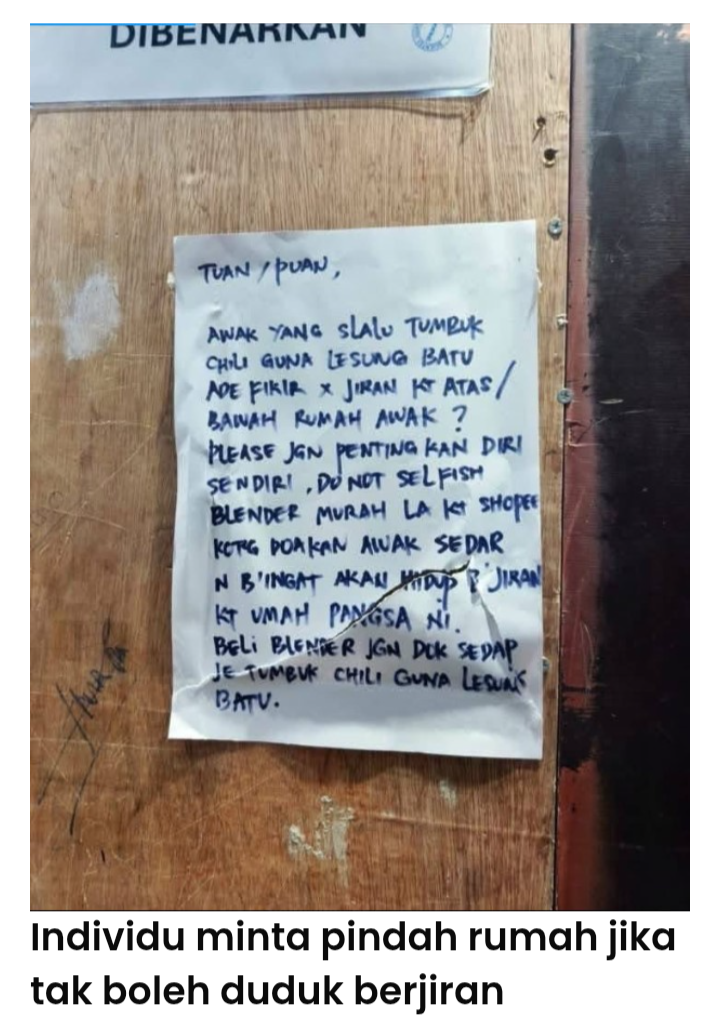 DIBENARKAN
TUAN / PUAN,
AWAK YANG SLALU TUMBUK
CHILI GUNA LESUNG BATU
ADE FIKIR X JIRAN KT ATAS/
BAWAH RUMAH AWAK ?
PLEASE JGN PENTING KAN DIRI
SENDIRI . DO NOT SELFISH
BLENDER MURAH LA KT SHOPEE
DOAKAN AWAK SEDAR
N B'INGAT AKAN HIDUP B'JIRAN
KT UMAH PANGSA NI.
BELI BLENDER JGN DOK SEDAP
JE TUMBUK CHILI GUNA LESUNG
BATU.
Individu minta pindah rumah jika
tak boleh duduk berjiran